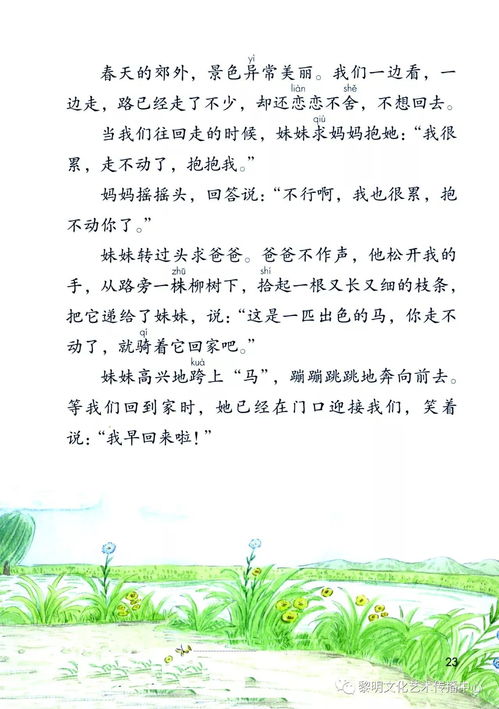 yì
春天的郊外，景色异常美丽。我们一边看，一
liàn shě
边走，路已经走了不少，却还恋恋不舍，不想回去。
qiú
当我们往回走的时候，妹妹求妈妈抱她：“我很
累，走不动了，抱抱我。”
妈妈摇摇头，回答说：“不行啊，我也很累，抱
不动你了。”
妹妹转过头求爸爸。爸爸不作声，他松开我的
zhū shí
手，从路旁一株柳树下，拾起一根又长又细的枝条，
把它递给了妹妹，说：“这是一匹出色的马，你走不
qí
动了，就骑着它回家吧。”
kuà
妹妹高兴地跨上“马”，蹦蹦跳跳地奔向前去。
等我们回到家时，她已经在门口迎接我们，笑着
说：“我早回来啦！”
23
黎明文化艺术传播中心